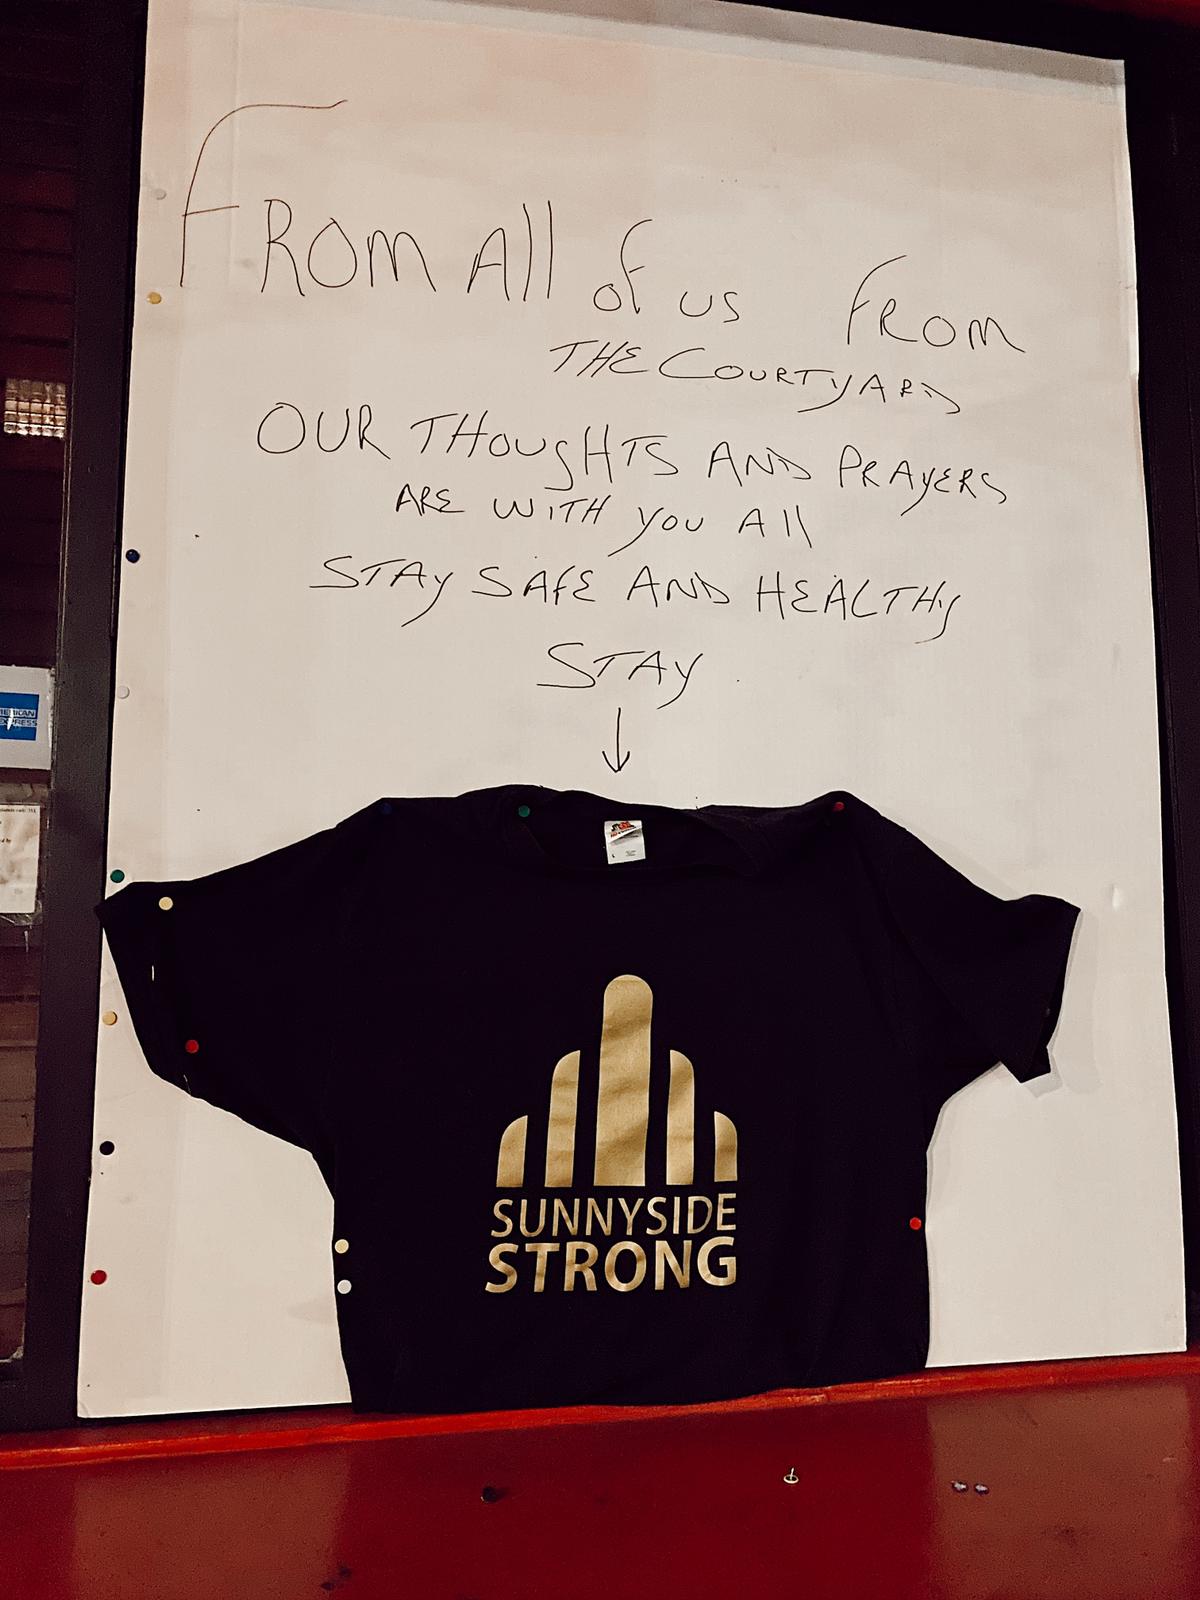 FROM All of us FROM
THE COURTYARD
OUR THOUGHTS AND PRAYERS
ARE WITH YOU All
STAY SAFE AND HEALTHY
STAY
SUNNYSIDE
STRONG
AMERICAN
EXPRESS